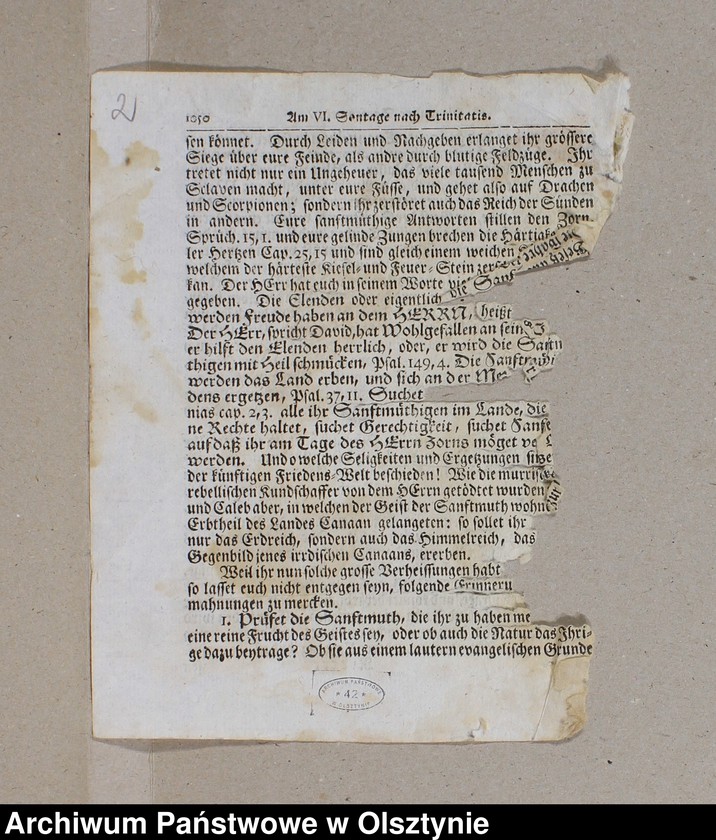 2
1050 Am VI. Sontage nach Trinitatis.
sen könnet. Durch Leiden und Nachgeben erlanget ihr grössere
Siege über eure Feinde, als andre durch blutige Feldzüge. Ihr
tretet nicht nur ein Ungeheuer, das viele tausend Menschen zu
Sclaven macht, unter eure Füsse, und gehet also auf Drachen
und Scorpionen; sondern ihr zerstöret auch das Reich der Sünden
in andern. Eure sanftmüthige Antworten stillen den Zorn
Sprüch. 15, 1. und eure gelinde Zungen brechen die
ler Hertzen Cap. 25, 15 und sind gleich einem weichen
welchem der härteste Kiesel- und Feuer-Stein
kan. Der HErr hat euch in seinem Worte
gegeben. Die Elenden oder eigentlich die
werden Freude haben an dem HERRN, heißt
Der HErr, spricht David, hat Wohlgefallen an
er hilft den Elenden herrlich, oder, er wird die
thigen mit Heil schmücken, Psal. 149, 4. Die
werden das Land erben, und sich an der
dens ergetzen, Psal. 37, 11. Suchet
nias cap. 2, 3. alle ihr Sanftmüthigen im Lande, die
ne Rechte haltet, suchet Gerechtigkeit, suchet
auf daß ihr am Tage des HErrn Zorns möget
werden. Und o welche Seligkeiten und Ergetzungen
der künftigen Friedens-Welt beschieden! Wie die
rebellischen Kundschaffer von dem HErrn getödtet wurden
und Caleb aber, in welchen der Geist der Sanftmuth
Erbtheil des Landes Canaan gelangeten: so sollet ihr
nur das Erdreich, sondern auch das Himmelreich, das
Gegenbild jenes irrdischen Canaans, ererben.
Weil ihr nun solche grosse Verheissungen habt
so lasset euch nicht entgegen seyn, folgende
mahnungen zu mercken.
1. Prüfet die Sanftmuth, die ihr zu haben
eine reine Frucht des Geistes sey, oder ob auch die Natur das Ihri-
ge dazu beytrage? Ob sie aus einem lautern evangelischen Grunde
ARCHIWUM PAŃSTWOWE
* 42 *
W OLSZTYNIE
Archiwum Państwowe w Olsztynie